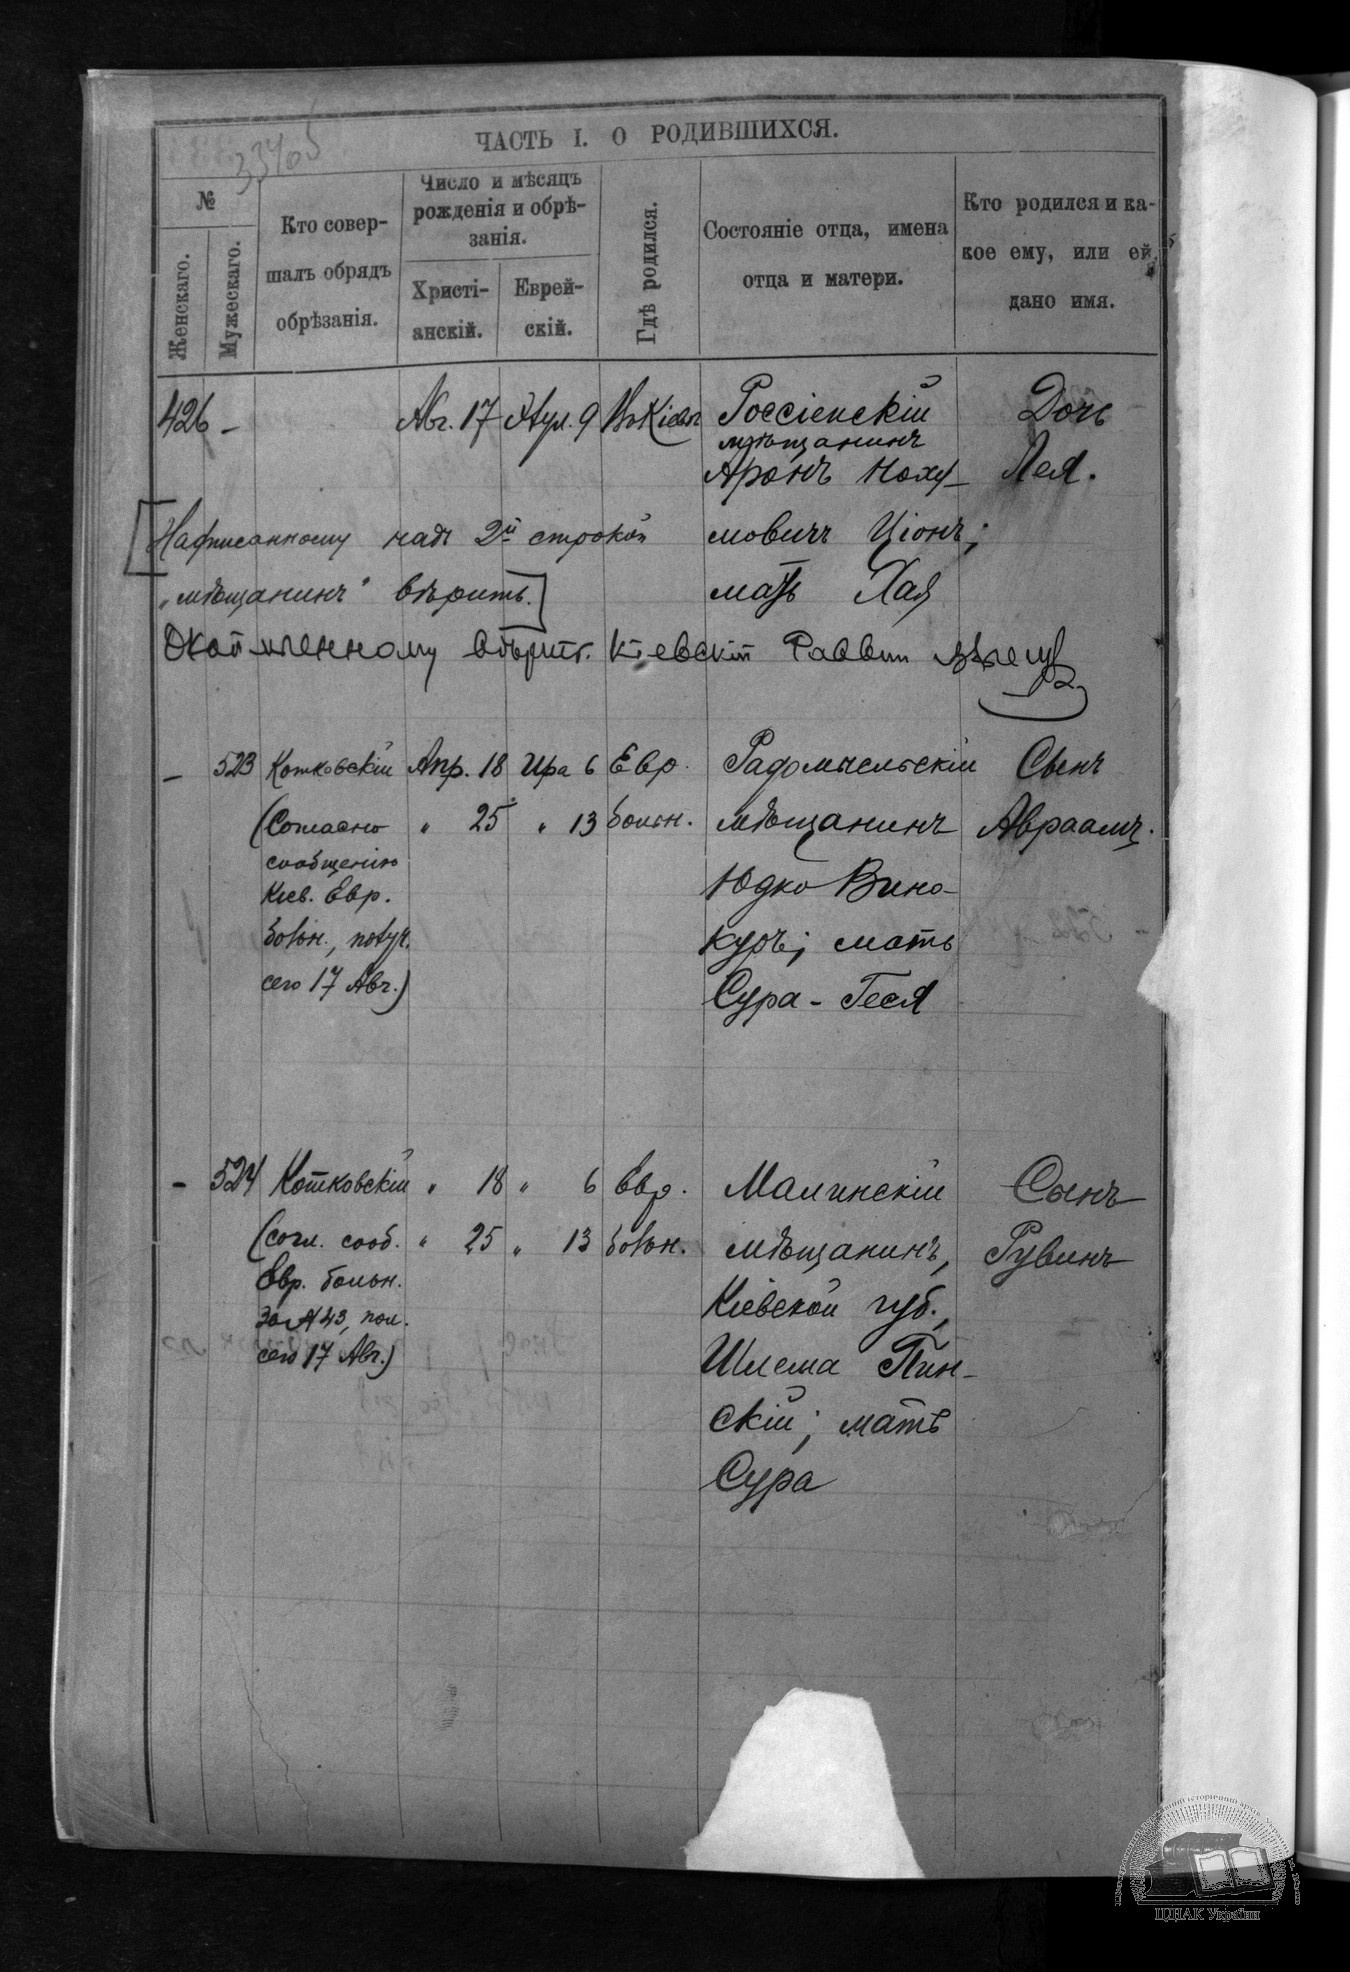 ЧАСТЬ I. О РОДИВШИХСЯ.
№
Женскаго.
Мужескаго.
Кто совер-
шалъ обрядъ
обрѣзанія.
Число и мѣсяцъ
рожденія и обрѣ-
занія.
Христі-
анскій.
Еврей-
скій.
Гдѣ родился.
Состояніе отца, имена
отца и матери.
Кто родился и ка-
кое ему, или ей
дано имя.
426 – Авг. 17 Элул. 9 Въ Кіевѣ Россіенскій Дочь
мѣщанинъ
АронъНоху- Лея.
[Надписанному надъ 2й строкой мовичъ Ціонъ;
„мѣщанинъ" вѣрить.] мать Хая
вѣрить. Кіевскій Раввин
– 523 Котковскій Апр. 18 Ира 6 Евр. Радомысльскій Сынъ
(Согласно " 25 " 13 больн. мѣщанинъ Авраамъ.
сообщенію
Кіев. Евр. Юдко Вино-
больн., получ. куръ; мать
сего 17 Авг.) Сура-Геся
– 524 Котковскій " 18 " 6 Евр. Малинскій Сынъ
(согл. сооб. " 25 " 13 больн. мѣщанинъ, Рувинъ
Евр. больн. Кіевской губ.,
за № 43, пол.
сего 17 Авг.) Шлема Пин-
скій; мать
Сура
ЦДІАК України